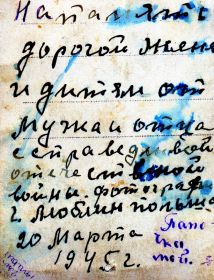 На память
дорогой жене
и дитям от
мужа и отца
с справедливой
отечественой
войны. фотограф
г. Люблин польша
20 Марта
1945 г.